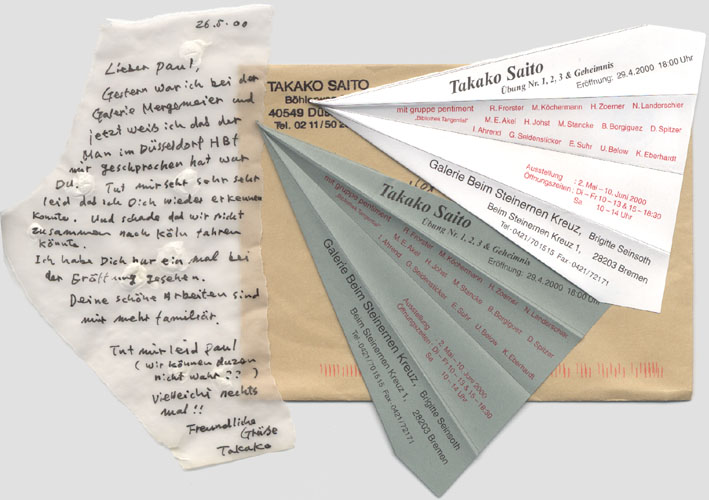 26.5.00
Lieber Paul,
Gestern war ich bei der
Galerie Mergemeier und
jetzt weiß ich daß der
Man im Düsseldorf HBf
mir geschprochen hat war
Du. Tut mir seht sehr sehr
leid daß ich Dich wieder erkennen
konnte. Und schade daß wir nicht
zusammen nach Köln fahren
könnte.
Ich habe Dich nur ein mal bei
der Eröffnung gesehen.
Deine schöne Arbeiten sind
mir mehr familiär.
Tut mir leid Paul
(wir können duzen
nicht wahr??)
Vielleicht nechts
mal!!
Freundliche
Grüße
Takako
TAKAKO SAITO
40549
Tel. 02 11/50
Takako Saito
Übung Nr. 1, 2, 3 & Geheimnis
Eröffnung: 29.4.2000 18:00 Uhr
mit gruppe pentiment
R.Frorster M.Köchermann H.Zoerner N.Landerschier
"Bibliotea Tangentia"
M.E.Akel H.Johst M.Stencke B.Borgiguez D.Spitzer
I.Ahrend G.Seidenstücker E.Suhr U.Below K.Eberhardt
Ausstellung : 2.Mai – 10.Juni 2000
Öffnungszeiten : Di – Fr 10 – 13 & 15 – 18:30
Sa 10 – 14 Uhr
Galerie Beim Steinernen Kreuz, Brigitte Seinsoth
Beim Steinernen Kreuz 1, 28203 Bremen
Tel·0421/701515 Fax·0421/72171
Takako Saito
Übung Nr. 1, 2, 3 & Geheimnis
Eröffnung: 29.4.2000 18:00 Uhr
mit gruppe pentiment
R.Frorster M.Köchermann H.Zoerner N.Landerschier
"Bibliotea Tangentia"
M.E.Akel H.Johst M.Stencke B.Borgiguez D.Spitzer
I.Ahrend G.Seidenstücker E.Suhr U.Below K.Eberhardt
Ausstellung : 2.Mai – 10.Juni 2000
Öffnungszeiten : Di – Fr 10 – 13 & 15 – 18:30
Sa 10 – 14 Uhr
Galerie Beim Steinernen Kreuz, Brigitte Seinsoth
Beim Steinernen Kreuz 1, 28203 Bremen
Tel·0421/701515 Fax·0421/72171